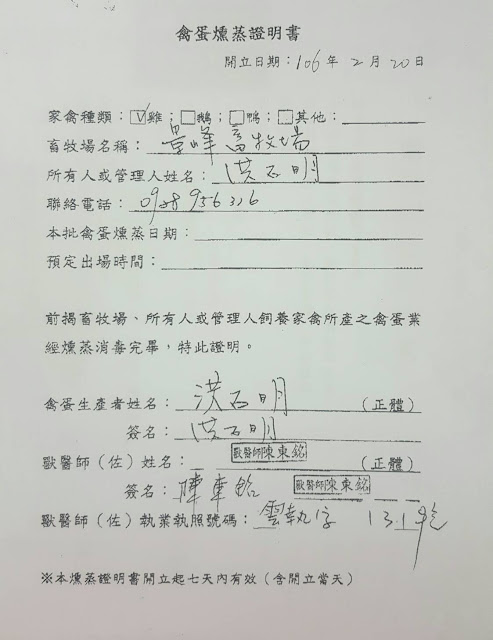 禽蛋燻蒸證明書
開立日期：106年2月20日
家禽種類：☑雞；□鵝；□鴨；□其他：
畜牧場名稱：景峰畜牧場
所有人或管理人姓名：洪石明
聯絡電話：0928 956 326
本批禽蛋燻蒸日期：
預定出場時間：
前揭畜牧場、所有人或管理人飼養家禽所產之禽蛋業
經燻蒸消毒完畢，特此證明。
禽蛋生產者姓名：洪石明（正體）
簽名：洪石明
獸醫師（佐）姓名：獸醫師陳東銘（正體）
簽名：陳東銘 獸醫師陳東銘
獸醫師（佐）執業執照號碼：雲執字 131號
※本燻蒸證明書開立起七天內有效（含開立當天）